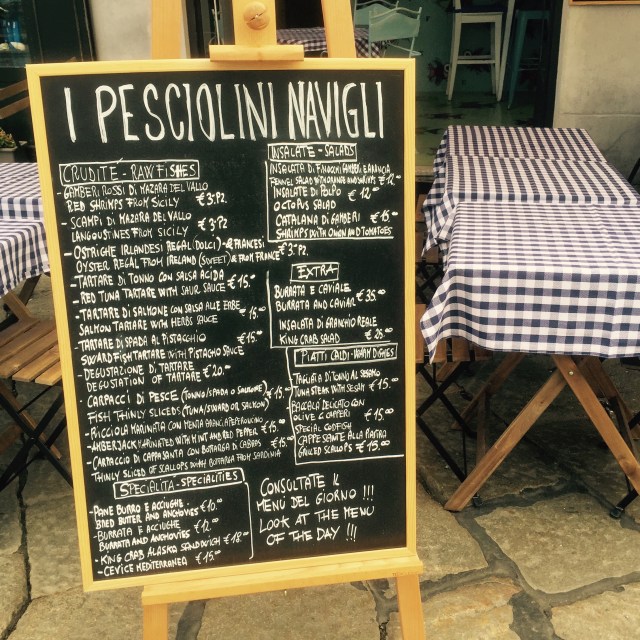 I PESCIOLINI NAVIGLI
CRUDITÉ - RAW FISHES
- GAMBERI ROSSI DI MAZARA DEL VALLO
RED SHRIMPS FROM SICILY €3 PZ.
- SCAMPI DI MAZARA DEL VALLO
LANGOUSTINES FROM SICILY €3 PZ.
- OSTRICHE IRLANDESI REGAL (DOLCI) - & FRANCESI
OYSTER REGAL FROM IRELAND (SWEET) & FROM FRANCE €3 PZ.
- TARTARE DI TONNO CON SALSA ACIDA
- RED TUNA TARTARE WITH SAUR SAUCE €15.=
- TARTARE DI SALMONE CON SALSA ALLE ERBE
SALMON TARTARE WITH HERBS SAUCE €15.=
- TARTARE DI SPADA AL PISTACCHIO
SWORDFISH TARTARE WITH PISTACHIO SAUCE €15.=
- DEGUSTAZIONE DI TARTARE
DEGUSTATION OF TARTARE €20.=
- CARPACCI DI PESCE (TONNO/SPADA O SALMONE)
FISH THINLY SLICEDS (TUNA/SWORD OR SALMON) €15.=
- RICCIOLA MARINATA CON MENTA E
AMBERJACK MARINATED WITH MINT AND RED PEPPER €15.=
- CARPACCIO DI CAPPASANTA CON BOTTARGA DI CABRAS
THINLY SLICED OF SCALLOPS WITH BOTTARGA FROM SARDINIA €15.=
SPECIALITÀ - SPECIALITIES
- PANE BURRO E ACCIUGHE €10.=
BRED BUTER AND ANCHOVIES
- BURRATA E ACCIUGHE €12.=
BURRATA AND ANCHOVIES
- KING CRAB ALASKA SANDWICH €18.=
- CEVICE MEDITERRANEA €15.=
INSALATE - SALADS
INSALATA DI FINOCCHI GAMBERI E ARANCIA
FENNEL SALAD WITH ORANGE AND SHRIMPS €12.=
INSALATE DI POLPO €12.=
OCTOPUS SALAD
CATALANA DI GAMBERI €15.=
SHRIMPS WITH ONION AND TOMATOES
EXTRA
BURRATA E CAVIALE €35.=
BURRATA AND CAVIAR
INSALATA DI GRANCHIO REALE
KING CRAB SALAD €25.=
PIATTI CALDI - WARM DISHES
TAGLIATA DI TONNO AL SESAMO
TUNA STEAK WITH SESAM €15.=
BACCALÀ DELICATO CON
OLIVE E CAPPERI €15.=
SPECIAL CODFISH
CAPPESANTE ALLA PIASTRA
GRILLED SCALLOPS €15.=
CONSULTATE IL
MENÙ DEL GIORNO !!!
LOOK AT THE MENU
OF THE DAY !!!